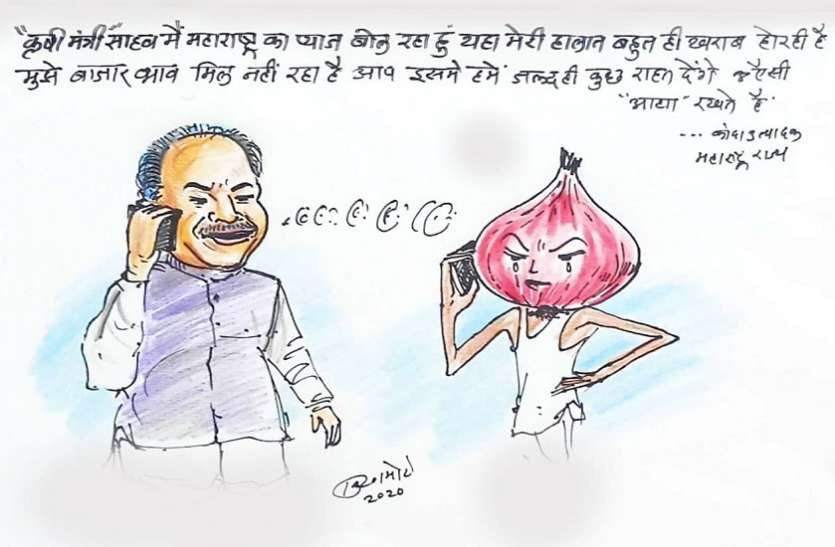 "कृषी मंत्री साहब मैं महाराष्ट्र का प्याज बोल रहा हुं यहा मेरी हालात बहुत ही खराब होरही है
मुझे बाजार भाव मिल नहीं रहा है आप इसमे हमें जल्द ही कुछ राहत देंगे ऐसी
"आशा" रखते है"
... कांदा उत्पादक
महाराष्ट्र राज्य
2020